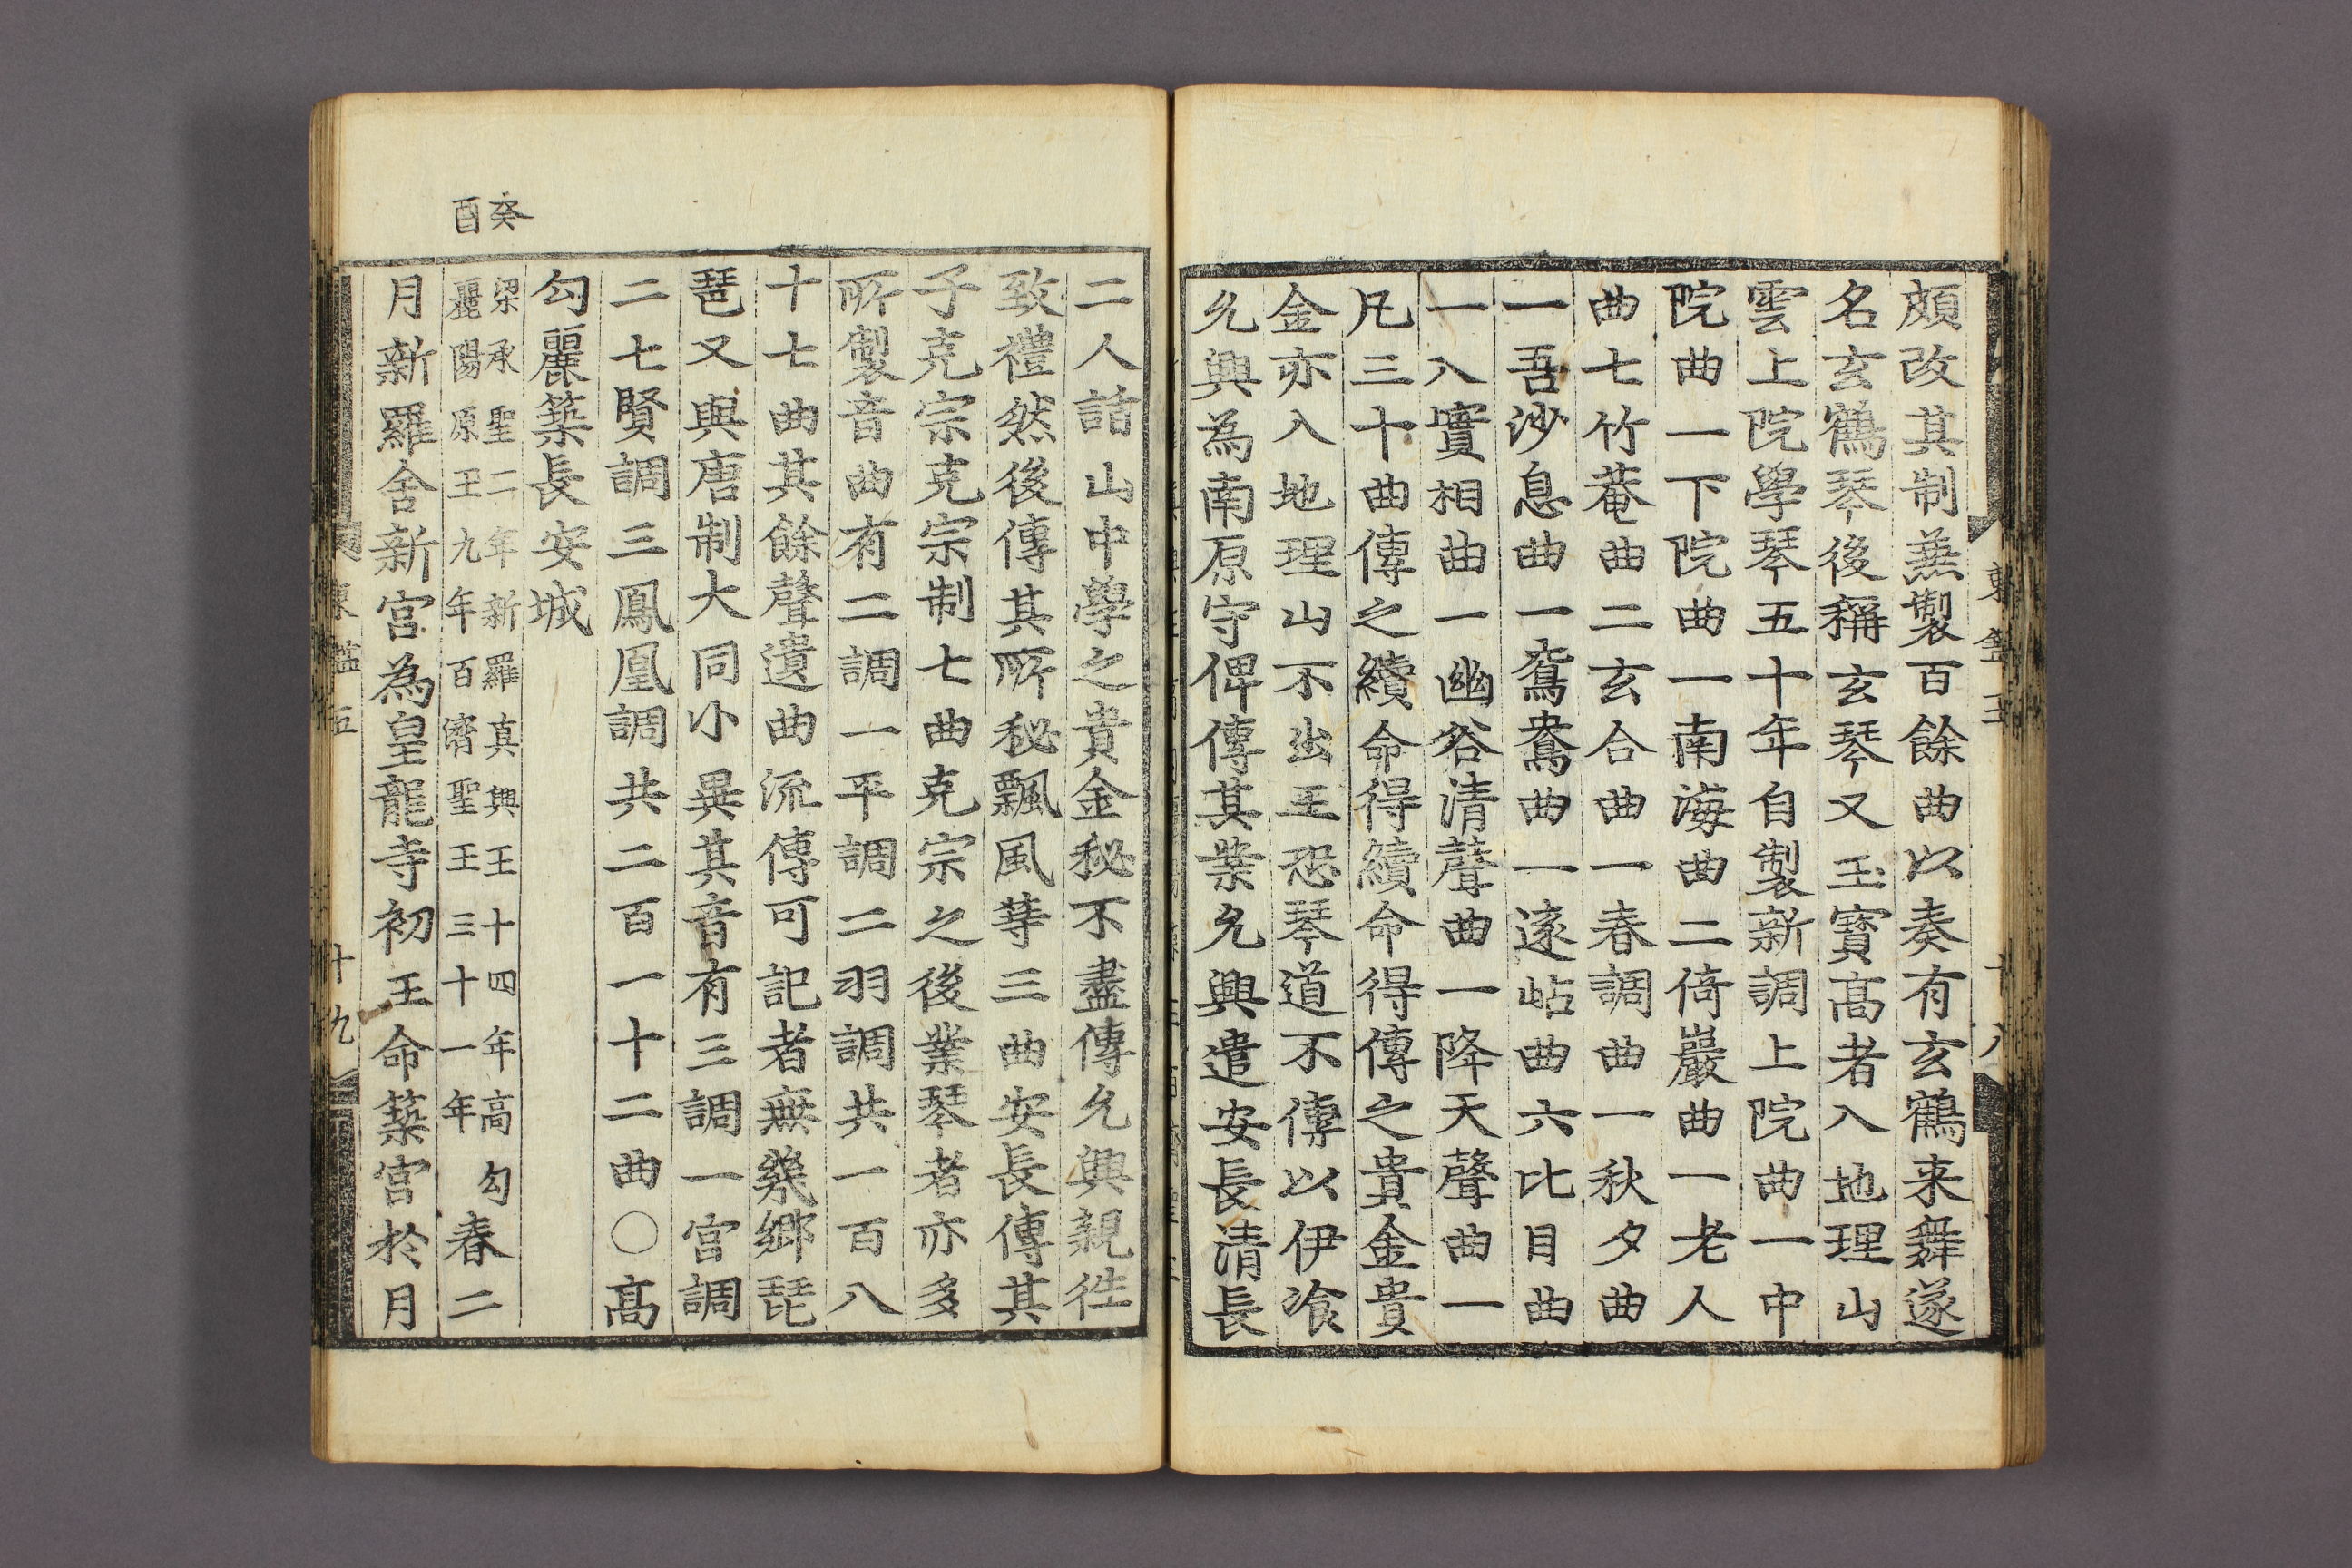 頗改其制蕪製百餘曲以奏有玄鶴来舞遂
名玄鶴琴後稱玄琴又玉寳髙者入地理山
雲上院學琴五十年自製新調上院曲一中
院曲一下院曲一南海曲二倚巖曲一老人
曲七竹菴曲二玄合曲一春調曲一秋夕曲
一吾沙息曲一鴛鴦曲一逺岾曲六比目曲
一入實相曲一幽谷清聲曲一降天聲曲一
凡三十曲傳之續命得續命得傳之貴金貴
金亦入地理山不出王恐琴道不傳以伊飡
允興為南原守俾傳其業允興遣安長清長
東鑑五
十八
二人詣山中學之貴金秘不盡傳允興親徃
致禮然後傳其所秘飄風等三曲安長傳其
子克宗克宗制七曲克宗之後業琴者亦多
所製音曲有二調一平調二羽調共一百八
十七曲其餘聲遺曲流傳可記者無幾鄉琵
琶又與唐制大同小異其音有三調一宮調
二七賢調三鳳凰調共二百一十二曲○髙
勾麗築長安城
癸酉
梁承聖二年新羅真興王十四年高勾
麗陽原王九年百濟聖王三十一年
春二
月新羅舍新宮為皇龍寺初王命築宮於月
東鑑五
十九